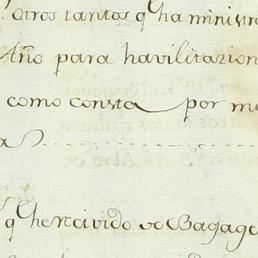 Otros tantos q.e ha ministr
Año para havilitazion
como consta por m
q.e he recivido de Bagage